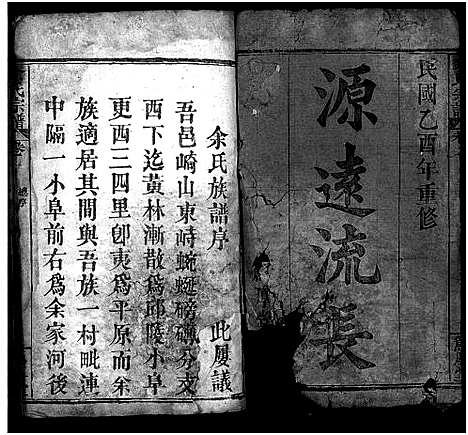 民國乙酉年重修
源遠流長
余氏族譜序
此屢議
吾邑崎山東峙蜿蜒磅礡分支
西下迄黃林漸散為邱陵小阜
更西三四里卽夷為平原而余
族適居其間與吾族一村毗連
中隔一小阜前右為余家河後
氏宗譜
總序